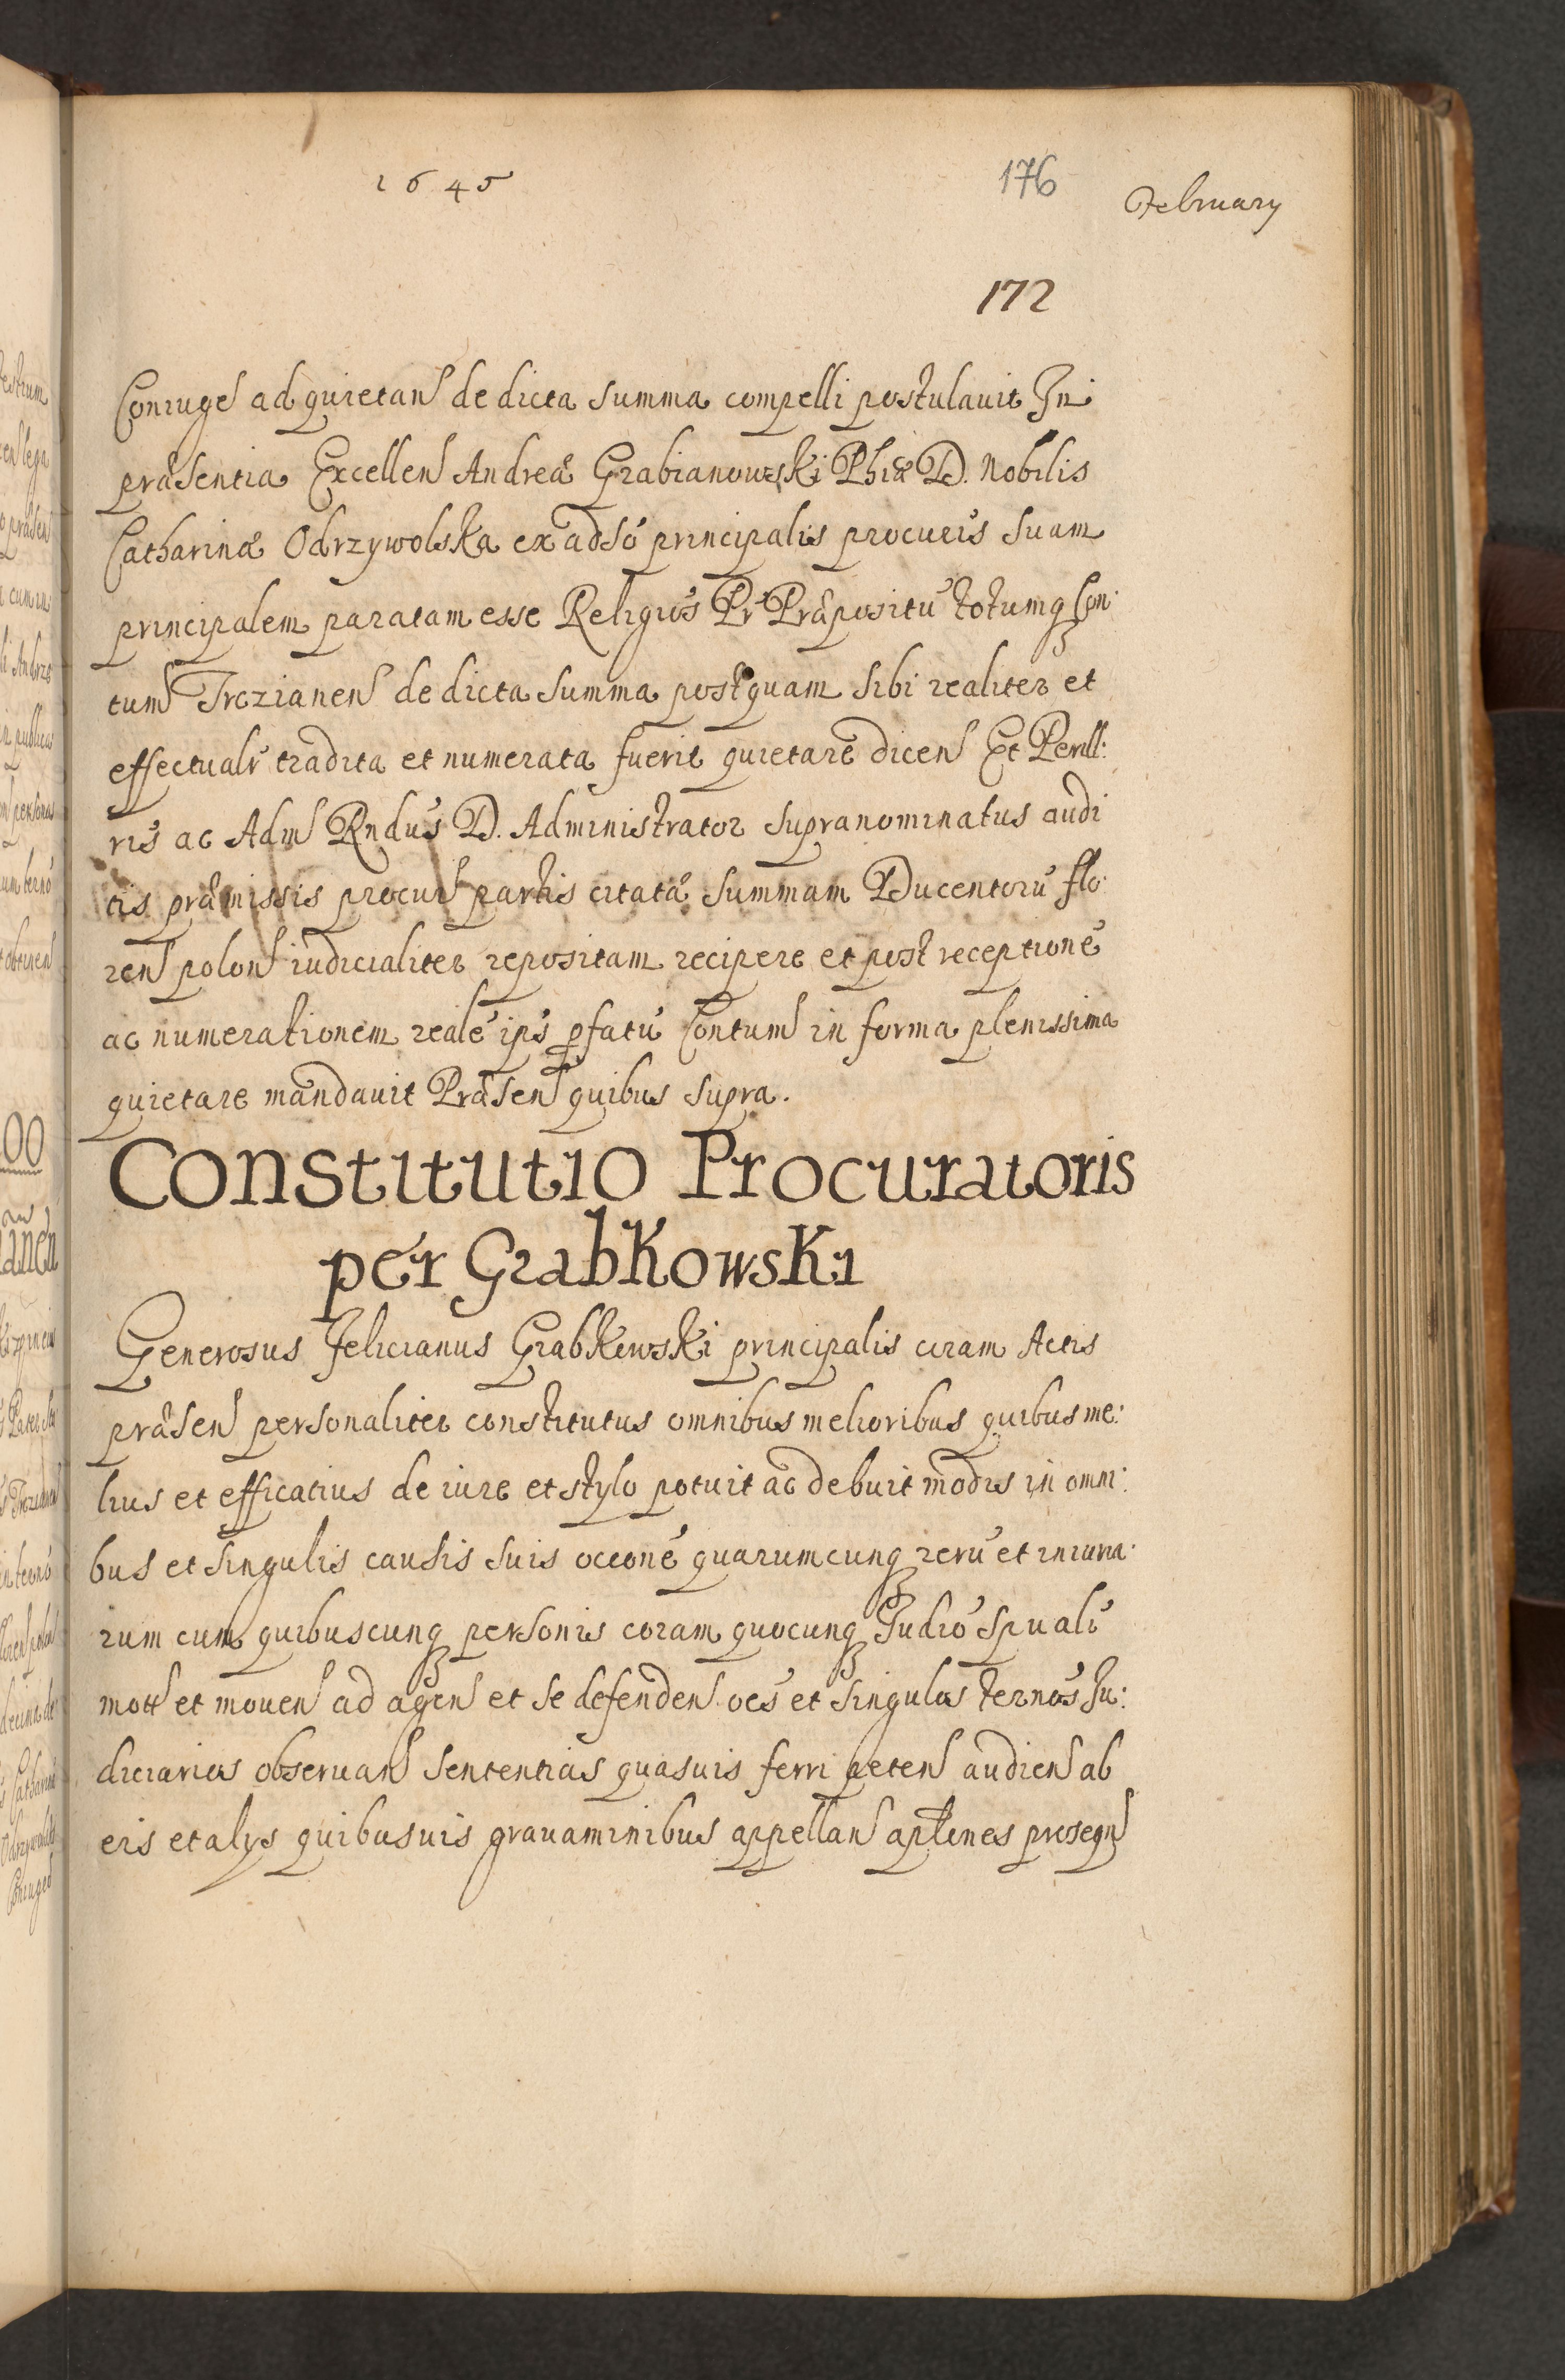 1645
176
February
172
Coniuge ad quietan de dicta summa compelli postulauit In
præsentia Excellen Andreæ Grabianowski Phiæ D. Nobilis
Catharinæ Odrzywolska ex adso principalis procuris suam
principalem paratam esse Religios Pr Præpositu totumq Con:
tum Trczianen de dicta summa postquam sibi realiter et
effectualr tradita et numerata fuerit quietare dicen Et Perill:
ris ac Adm Rndus D. Administrator supranominatus audi
tis præmissis procur partis citatæ summam Ducentoru flo:
ren polon iudicialiter repositam recipere et post receptione
ac numerationem reale ips pfatu Contum in forma plenissima
quietare mandauit Præsen quibus supra.
Constitutio Procuratoris
per Grabkowski
Generosus Felicianus Grabkowski principalis coram Actis
præsen personaliter constitutus omnibus melioribus quibus me:
lius et efficatius de iure et stylo potuit ac debuit modis in omni:
bus et singulis causis suis occone quarumcunq reru et iniuria:
rum cum quibuscunq personis coram quocunq Iudio Spuali
mott et mouen ad agen et se defenden oes et singulos ternos Iu:
diciarios obseruan sententias quasuis ferri peten audien ab
eis et alys quibusuis grauaminibus appellan aplenes prosequ